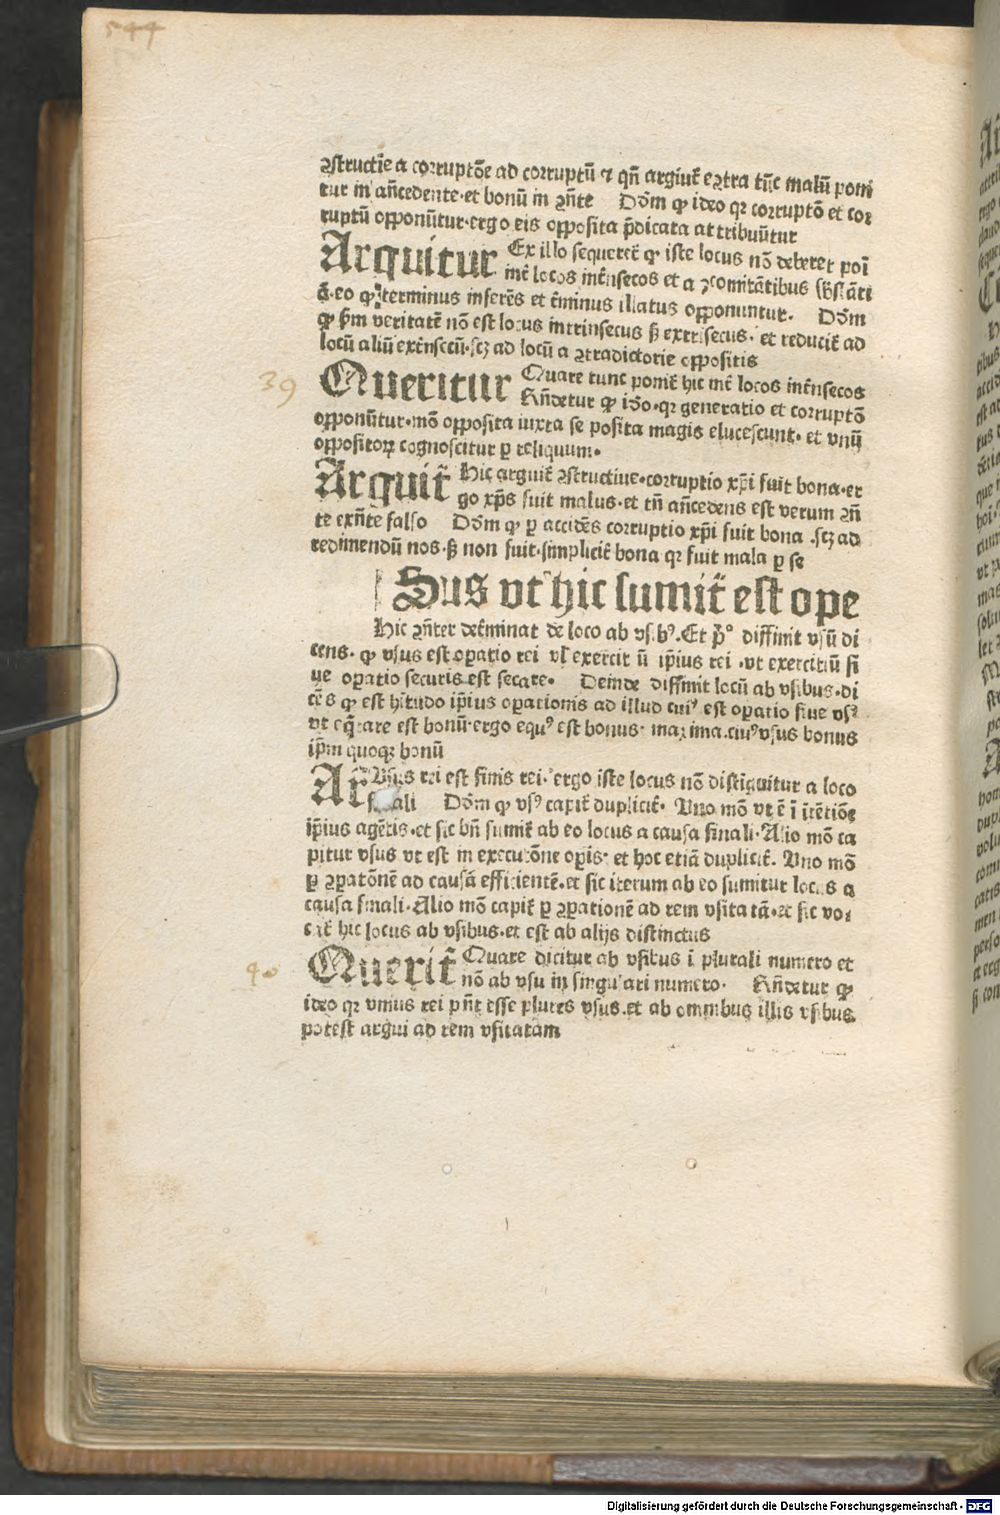 544
ꝯstructiue a corruptōe ad corruptū ⁊ qn̄ arguit̄ eꝯtra tūc malū poni
tur in añcedente·et bonū in ꝯñte Dōm ꝙ ideo qꝛ corruptō et cor
ruptū opponūtur·ergo eis opposita p̄dicata attribuūtur
Arguitur Ex illo sequeret̄ ꝙ iste locus nō deberet poī
int̄ locos int̄nsecos et a ꝯcomitātibus sb̄stāti
ā·eo ꝙ terminus inferēs et t̄minus illatus opponuntur· Dōm
ꝙ ẜm veritatē nō est locus intrinsecus sꝫ extrīsecus· et reducit̄ ad
locū aliū ext̄nsecū·scꝫ ad locū a ꝯtradictorie oppositis
39
Queritur Quare tunc ponit̄ hic int̄ locos int̄nsecos
Rñdetur ꝙ iō·qꝛ generatio et corruptō
opponūtur·mō opposita iuxta se posita magis elucescunt· et vnū
oppositoꝝ cognoscitur ꝑ reliquum·
Arguit̄ Hic arguit̄ ꝯstructiue·corruptio xp̄i fuit bona·er
go xp̄s fuit malus·et tñ añcedens est verum ꝯñ
te exñte falso Dōm ꝙ ꝑ accidēs corruptio xp̄i fuit bona ·scꝫ ad
redimendū nos·sꝫ non fuit·simplicit̄ bona qꝛ fuit mala ꝑ se
Usus vt hic sumit̄ est ope
Hic ꝯñter det̄minat de loco ab vsibꝰ·Et pͦ diffinit vsū di
cens· ꝙ vsus est oꝑatio rei vl̄ exercitiū ip̄ius rei ·vt exercitiū si
ue oꝑatio securis est secare· Deinde diffinit locū ab vsibus·di
cēs ꝙ est hītudo ip̄ius oꝑationis ad illud cuiꝰ est oꝑatio siue vsꝰ
vt eq̄tare est bonū·ergo equꝰ est bonus· maxima·cuiꝰ vsus bonus
ip̄m quoqꝫ bonū
Ar̄ Vsus rei est finis rei· ergo iste locus nō distīguitur a loco
finali Dōm ꝙ vsꝰ capit̄ duplicit̄· Vno mō vt ē ī ītētiōe
ip̄ius agētis·et sic bñ sumit̄ ab eo locus a causa finali·Alio mō ca
pitur vsus vt est in executōne oꝑis· et hoc etiā duplicit̄· Vno mō
ꝑ ꝯꝑatōnē ad causā efficientē·et sic iterum ab eo sumitur locus a
causa finali·Alio mō capit̄ ꝑ ꝯꝑationē ad rem vsitatā·et sic vo⸗
cat̄ hic locus ab vsibus·et est ab alijs distinctus
40
Querit̄ Quare dicitur ab vsibus ī plurali numero et
nō ab vsu in singulari numero· Rñdetur ꝙ
ideo qꝛ vnius rei pñt esse plures vsus·et ab omnibus illis vsibus
potest argui ad rem vsitatam
Digitalisierung gefördert durch die Deutsche Forschungsgemeinschaft · DFG